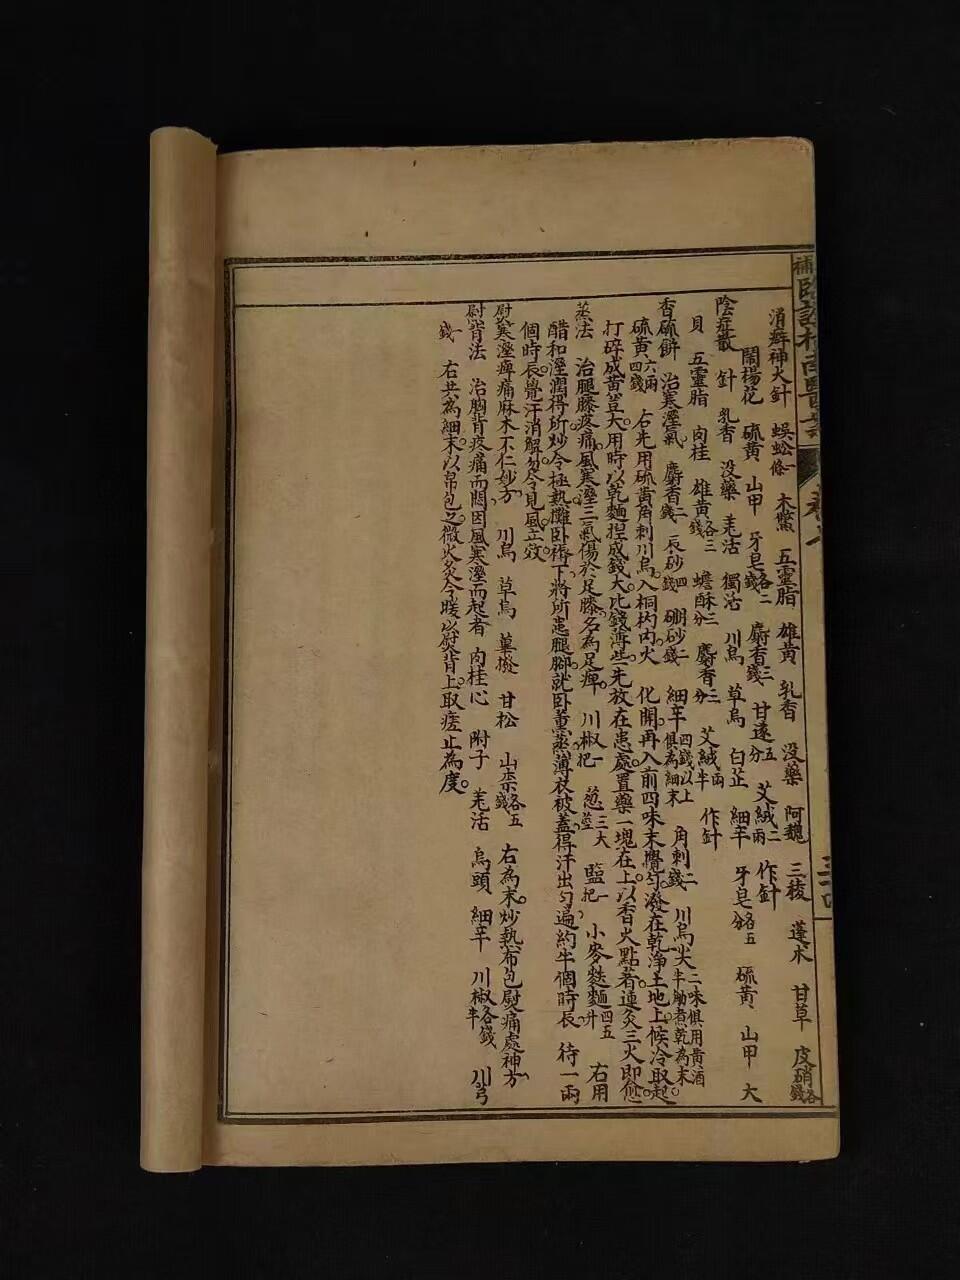 補臨證指南醫案 卷七
消癖神火針 蜈蚣一條 木鱉 五靈脂 雄黃 乳香 没藥 阿魏 三稜 蓬术 甘草 皮硝各錢
鬧楊花 硫黃 山甲 牙皂各二錢 麝香三錢 甘遂五分 艾絨二兩 作針
陰症散 針 乳香 没藥 羌活 獨活 川烏 草烏 白芷 細辛 牙皂各五分 硫黃 山甲 大
貝 五靈脂 肉桂 雄黃各三錢 蟾酥三分 麝香三分 艾絨兩半 作針
香硫餅 治寒溼氣。 麝香二錢 辰砂四錢 硼砂二錢 細辛四錢以上俱為細末 角刺二錢 川烏尖二味俱用黃酒半觔煮乾為末
硫黃六兩四錢 右先用硫黃角刺川烏。入桐杓内。火 化開。再入前四味末攪勻。潑在乾淨土地上。候冷取起。
打碎成黃荳大。用時以乾麵捏成錢大。比錢薄些。先放在患處。置藥一塊在上。以香火點著。連灸三火即愈
蒸法 治腿膝疼痛。風寒溼三氣傷於足膝。名為足痺。 川椒一把 葱三大莖 鹽一把 小麥麩麵四五升 右用
醋和溼潤得所。炒令極熱。攤臥褥下。將所患腿腳就臥薰蒸。薄衣被蓋得汗出勻遍。約半個時辰。 待一兩
個時辰。覺汗消解。勿令見風。立效。
熨寒溼痺痛麻木不仁妙方、 川烏 草烏 蓽撥 甘松 山柰各五錢 右為末。炒熱布包。熨痛處。神方、
熨背法 治胸背疼痛而悶。因風寒溼而起者 肉桂心 附子 羌活 烏頭 細辛 川椒各錢半 川芎
一錢 右共為細末。以帛包之。微火灸令暖。以熨背上。取瘥止為度。